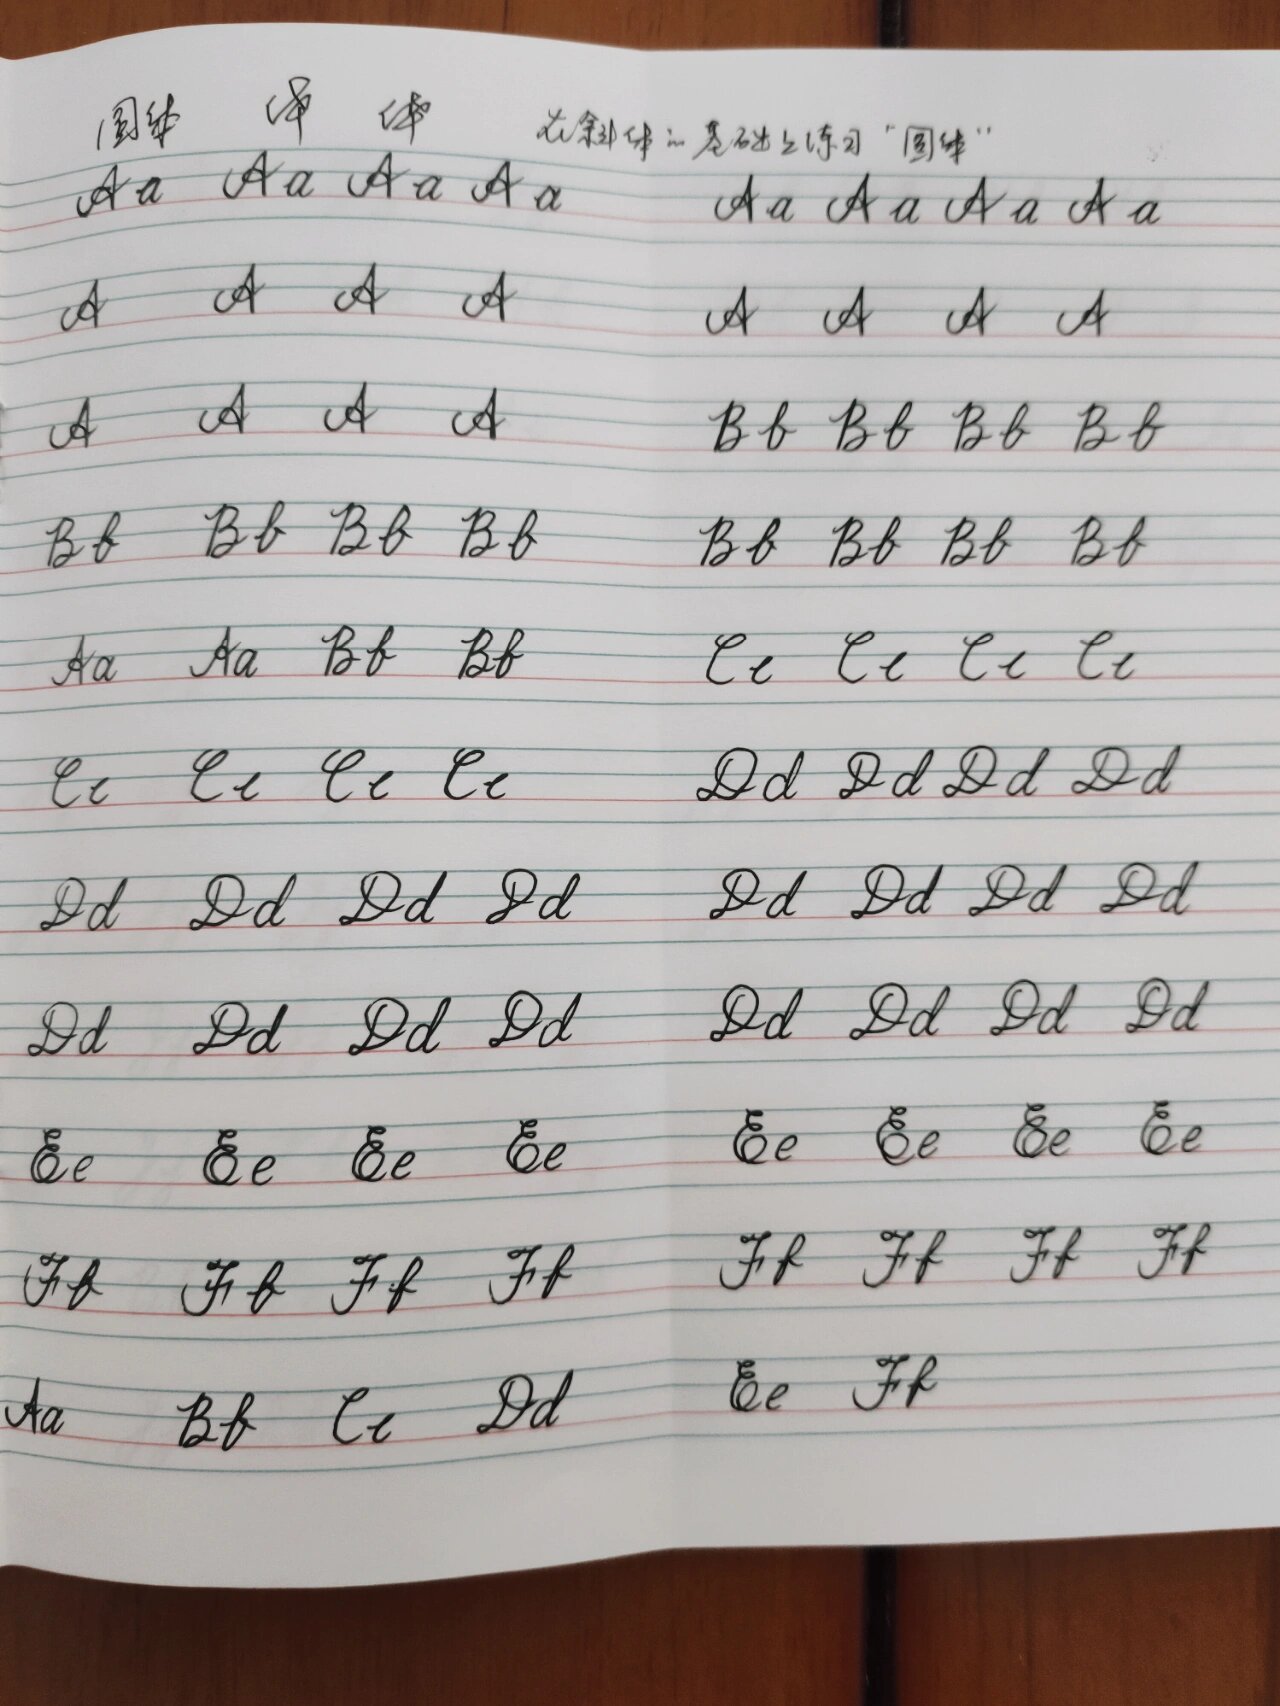 圆体 体 体 在斜体的基础上练习“圆体”
Aa Aa Aa Aa
A A A A
A A A A
Bb Bb Bb Bb
Aa Aa Bb Bb
Cc Cc Cc Cc
Dd Dd Dd Dd
Dd Dd Dd Dd
Ee Ee Ee Ee
Ff Ff Ff Ff
Aa Bb Cc Dd
Aa Aa Aa Aa
A A A A
Bb Bb Bb Bb
Bb Bb Bb Bb
Cc Cc Cc Cc
Dd Dd Dd Dd
Dd Dd Dd Dd
Dd Dd Dd Dd
Ee Ee Ee Ee
Ff Ff Ff Ff
Ee Ff